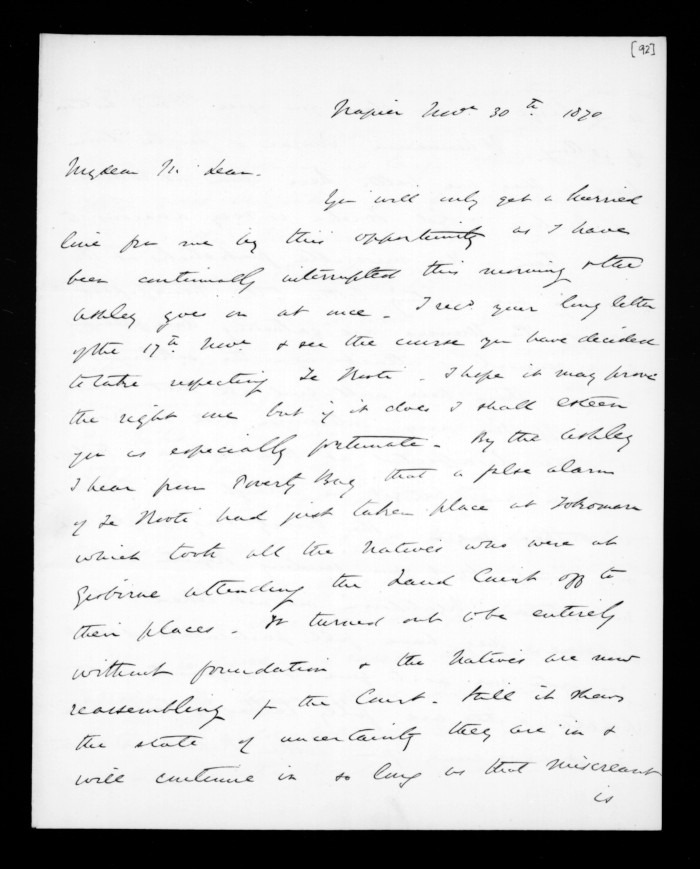 [92]
Napier Novr 30th 1870
My dear McLean.
You will only get a hurried
line from me by this opportunity as I have
been continually interrupted this morning & the
Ashley goes on at once. I recd your long letter
of the 17th Novr & see the course you have decided
to take respecting Te Kooti. I hope it may prove
the right one but if it does I shall esteem
you as especially fortunate. By the Ashley
I hear from Poverty Bay that a false alarm
of Te Kooti had just taken place at Tokomaru
which took all the Natives who were at
Gisborne attending the Land Court off to
their places. It turned out to be entirely
without foundation & the Natives are now
reassembling for the Court. Still it shews
the state of uncertainty they are in &
will continue in so long as that miscreant
is